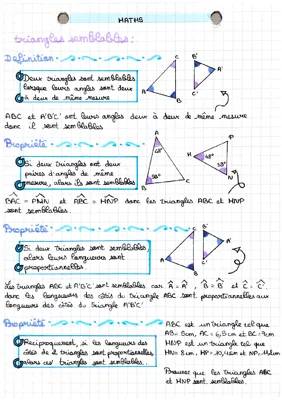 MATHS
triangles semblables :
Définition :
Deux triangles sont semblables
lorsque leurs angles sont deux
à deux de même mesure
A
B
C
A'
B'
C'
ABC et A'B'C' ont leurs angles deux à deux de même mesure
donc ils sont semblables
Propriété :
Si deux triangles ont deux
paires d'angles de même
mesure, alors ils sont semblables
A
B
C
48°
58°
M
N
P
48°
58°
BAC = PMN et ABC = MNP donc les triangles ABC et MNP
sont semblables.
Propriété :
Si deux triangles sont semblables,
alors leurs longueurs sont
proportionnelles.
A
B
C
A'
B'
C'
Les triangles ABC et A'B'C' sont semblables car A = A', B = B' et C = C'.
donc les longueurs des côtés du triangle ABC sont proportionnelles aux
longueurs des côtés du triangle A'B'C'
Propriété :
Réciproquement, si les longueurs des
côtés de 2 triangles sont proportionnelles,
alors ces triangles sont semblables.
ABC est un triangle tel que
MNP est un triangle tel que
Prouver que les triangles ABC
et MNP sont semblables.